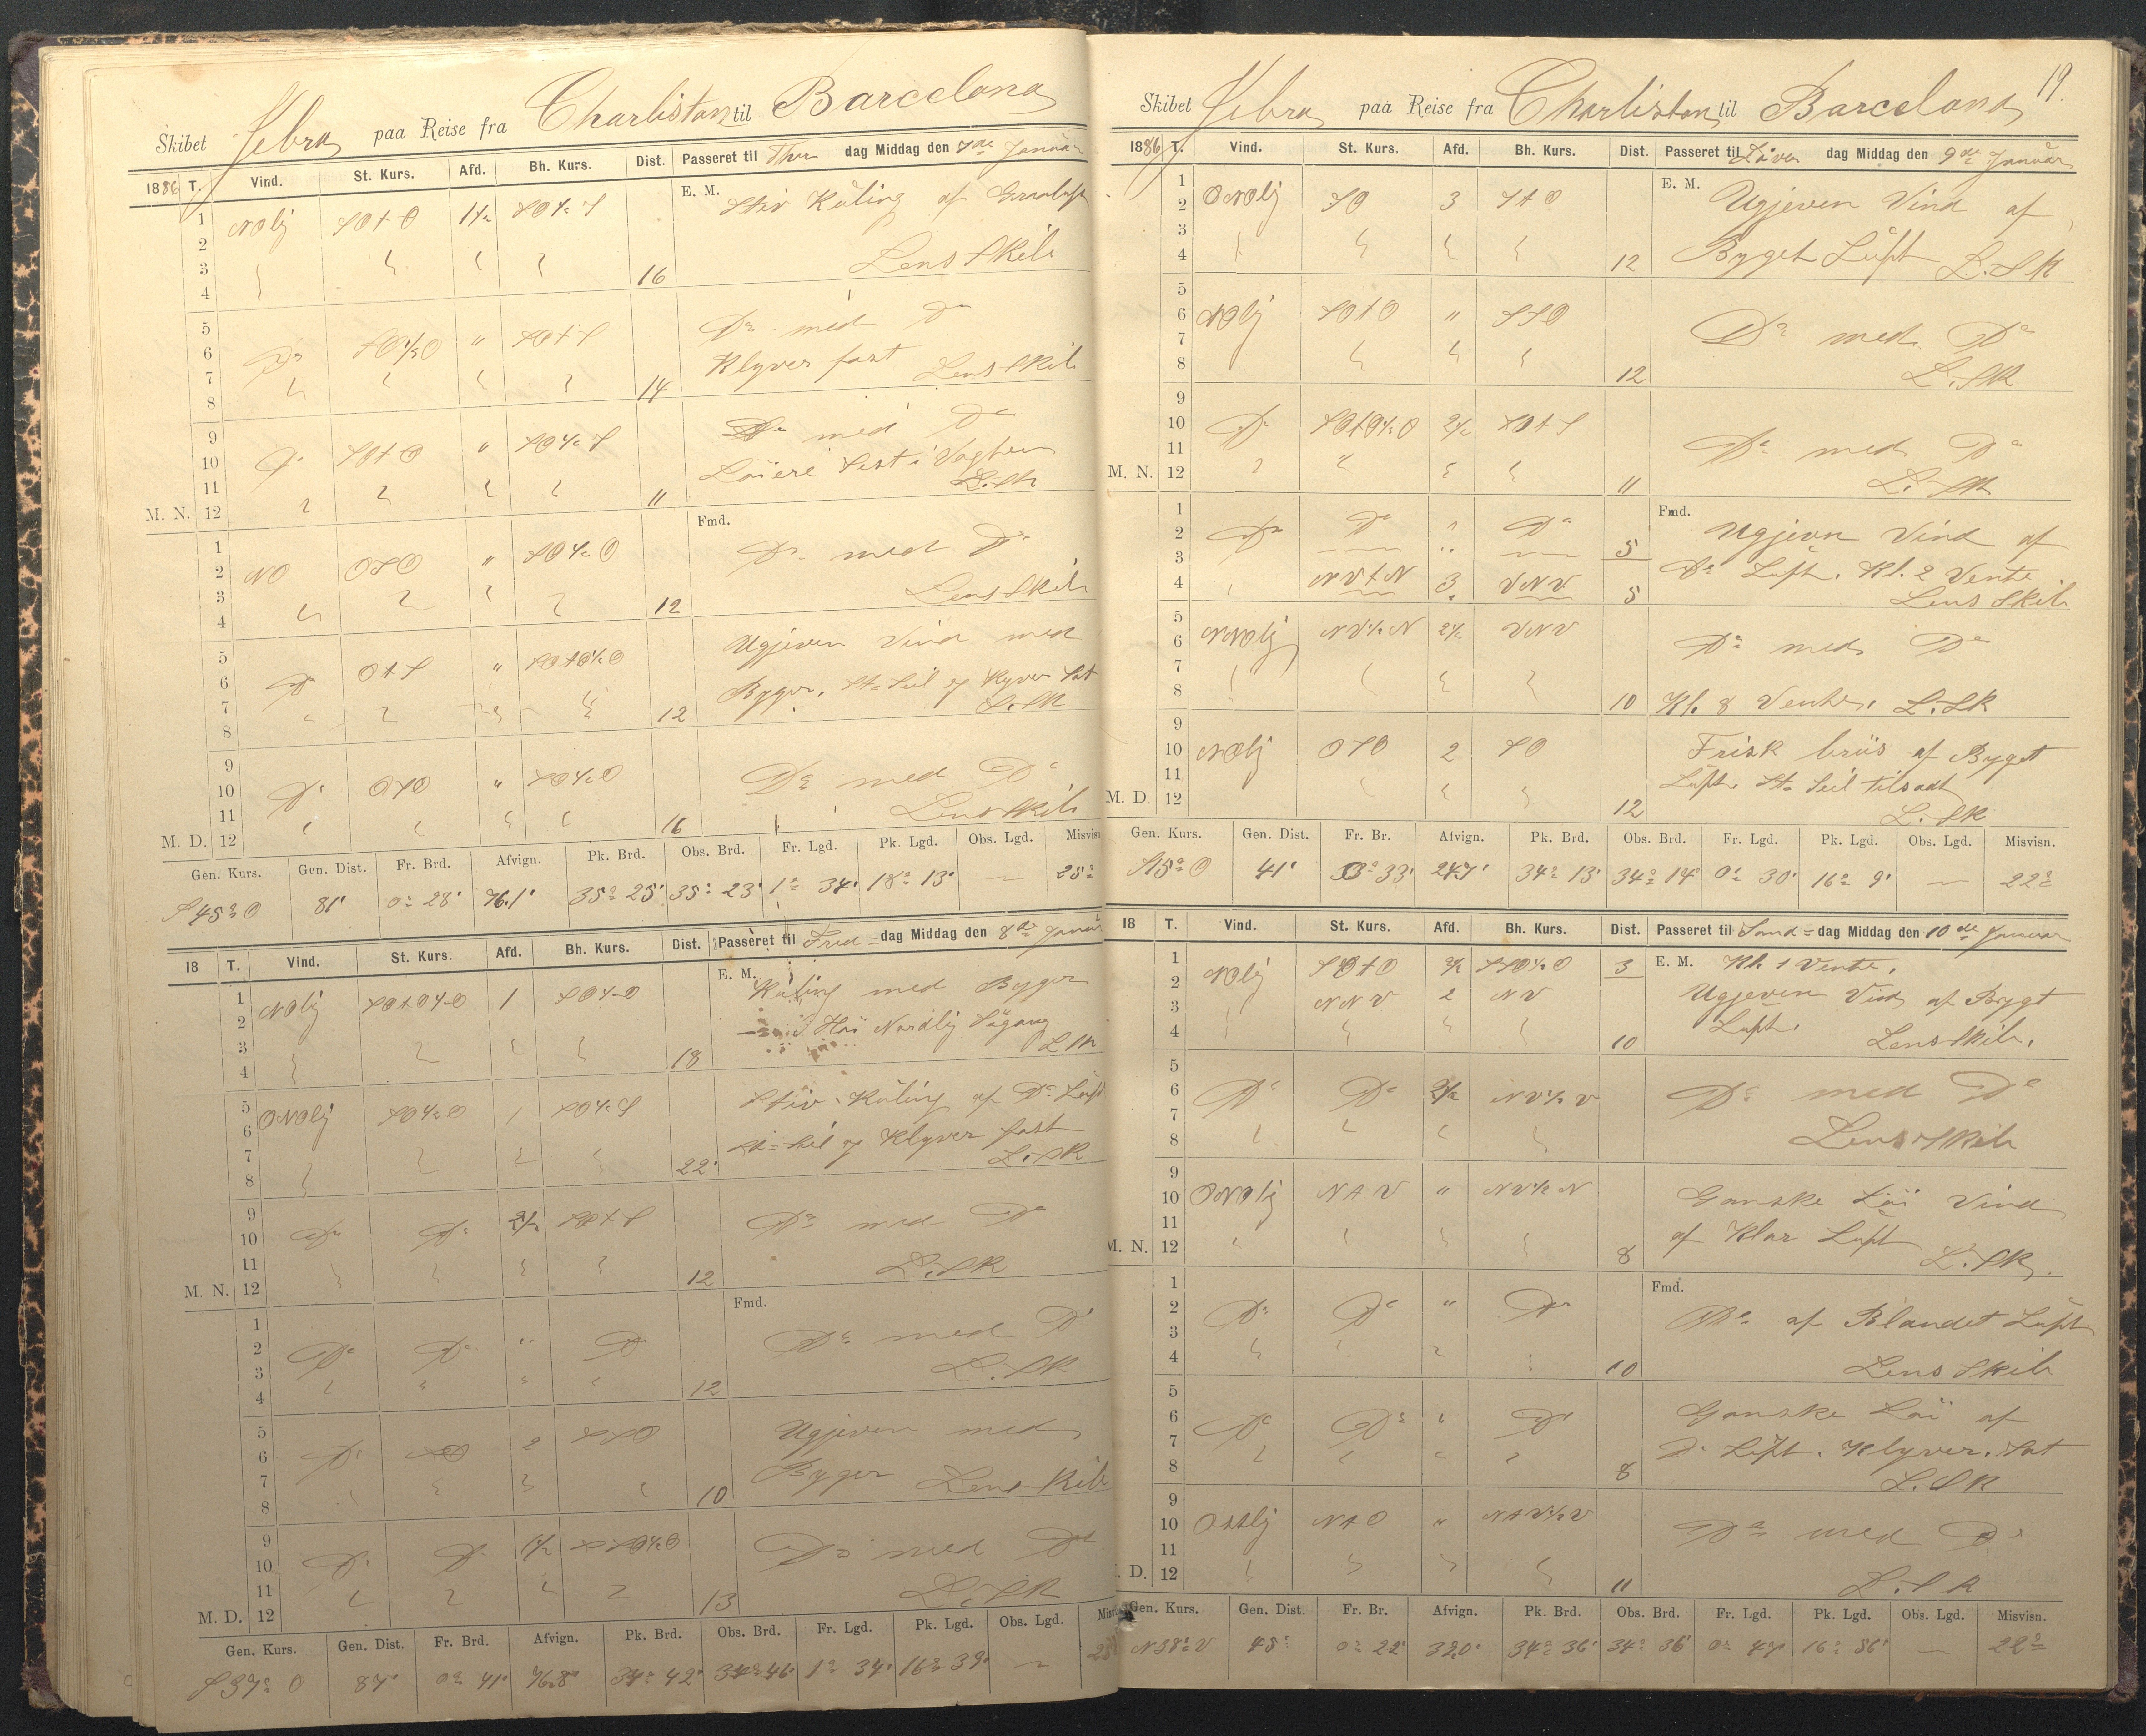 Skibet Hebra paa Reise fra Charliston til Barcelona
1886 T. Vind. St. Kurs. Afd. Bh. Kurs. Dist. Passeret til Thorsdag Middag den 7de Januar
1 2 3 4 NOlj SOtO 1½ SO½S 16 E. M. Stiv Küling af Graaluft
Lens Skib
5 6 7 8 Do SO½O " SOtS 14 Do med Do
Klyver fast Lens Skib
9 10 11 M. N. 12 Do SOtO " SO½S 11 Do med Do
Löiere sist i Vagten
L. Sk
1 2 3 4 NO OSO " SO½O 12 Fmd. Do med Do
Lens Skib
5 6 7 8 Do OtS " SOtO½O 12 Ugjeven Vind med
Byger. St=Seil og Klyver Sat
L. Sk
9 10 11 M. D. 12 Do OSO " SO½O 16 Do med Do
Lens Skib
Gen. Kurs. Gen. Dist. Fr. Brd. Afvign. Pk. Brd. Obs. Brd. Fr. Lgd. Pk. Lgd. Obs. Lgd. Misvisn.
S45°O 81' 0° 28' 76.1' 35° 25' 35° 23' 1° 34' 18° 13' — 25°
18 T. Vind. St. Kurs. Afd. Bh. Kurs. Dist. Passeret til Fred=dag Middag den 8de Januar
1 2 3 4 NOlj SOtO½O 1 SO½O 18 E. M. Küling med Byger
Höi Nordlig Sögang
L Sk
5 6 7 8 ONOlj SO½O 1 SO½S 22' Stiv Küling af Do Luft
St=Seil og Klyver fast
L. Sk
9 10 11 M. N. 12 Do Do 2½ SOtS 12 Do med Do
L. Sk
1 2 3 4 Do Do " Do 12 Fmd. Do med Do
L. Sk
5 6 7 8 Do SO 2 SSO 10 Ugjeven med
Byger Lens Skib
9 10 11 M. D. 12 Do Do 1½ SSO½O 13 Do med Do
L. Sk
Gen. Kurs. Gen. Dist. Fr. Brd. Afvign. Pk. Brd. Obs. Brd. Fr. Lgd. Pk. Lgd. Obs. Lgd. Misvisn.
S37°O 87' 0° 41' 76.8' 34° 42' 34° 46' 1° 34' 16° 39' —
19.
Skibet Hebra paa Reise fra Charliston til Barcelona
1886 T. Vind. St. Kurs. Afd. Bh. Kurs. Dist. Passeret til Löverdag Middag den 9de Januar
1 2 3 4 ONOlj SO 3 StO 12 E. M. Ugjeven Vind af
Byget Luft L. Sk
5 6 7 8 NOlj SOtO " SSO 12 Do med Do
L. Sk
9 10 11 M. N. 12 Do SOtO½O 2½ SOtS 11 Do med Do
L. Sk
1 2 3 4 Do Do " Do 5 Fmd. Ugjeven Vind af
NVtN 3 VNV 5 Do Luft. Kl. 2 Vente
Lens Skib
5 6 7 8 NNOlj NV½N 2½ VNV 10 Do med Do
Kl. 8 Vente. L. Sk
9 10 11 M. D. 12 NOlj OSO 2 SO 12 Frisk briis af Byget
Luft. St=Seil tilsadt
L. Sk
Gen. Kurs. Gen. Dist. Fr. Br. Afvign. Pk. Brd. Obs. Brd. Fr. Lgd. Pk. Lgd. Obs. Lgd. Misvisn.
S15°O 41' 0° 33' 24.7' 34° 13' 34° 14' 0° 30' 16° 9' — 22°
18 T. Vind. St. Kurs. Afd. Bh. Kurs. Dist. Passeret til Sönd=dag Middag den 10de Januar
1 2 3 4 NOlj SOtO 2½ SSO½O 3 E. M. Kl. 1 Vente.
NNV 2 NV 10 Ugjeven Vind af Bygt
Luft. Lens Skib.
5 6 7 8 Do Do 2½ NV½V Do med Do
Lens Skib
9 10 11 M. N. 12 ONOlj NtV " NV½N 8 Ganske Löi Vind
af Klar Luft L. Sk
1 2 3 4 Do Do " Do 10 Fmd. Do af Blandet Luft
Lens Skib
5 6 7 8 Do Do " Do 8 Ganske Löi af
Do Luft. Klyver. Sat
L. Sk
9 10 11 M. D. 12 Ostlj NtO " NtV½V 11 Do med Do
L. Sk
Gen. Kurs. Gen. Dist. Fr. Br. Afvign. Pk. Brd. Obs. Brd. Fr. Lgd. Pk. Lgd. Obs. Lgd. Misvisn.
N38°V 48' 0° 22' 32.0' 34° 36' 34° 36' 0° 47' 16° 56' — 22°